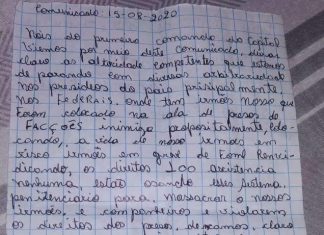 Comunicado: 15-08-2020
Nois do primeiro comando da Capital
Viemos por meio deste Comunicado, deixar
claro as altoridade competentes que estamos
de parando com diversas arbitrariedade
nos presidios do país prisipalmente
Nos FEdERAis. onde tem irmãos Nosso que
foram colocado na ala de presos de
FACÇÕES inimiga propositalmente, Colo-
cando, a vida de nosso irmãos em
risco irmãos em greve de Fome Reinvi-
dicando, os direitos 100 assistencia
nenhuma, estão usando esse sistema
penitenciario para, massacrar o nossos
irmãos, e companheiros e violarem
os direitos dos presos, deixamos, claro